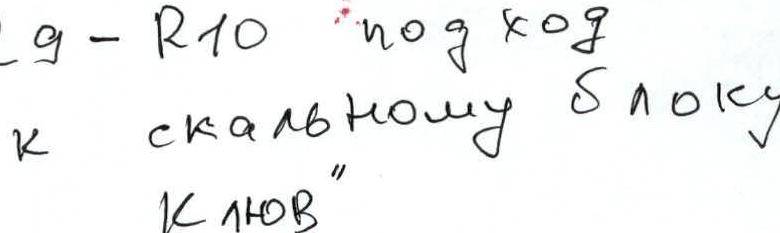 R9 - R10 подход
к скальному блоку
Клюв"